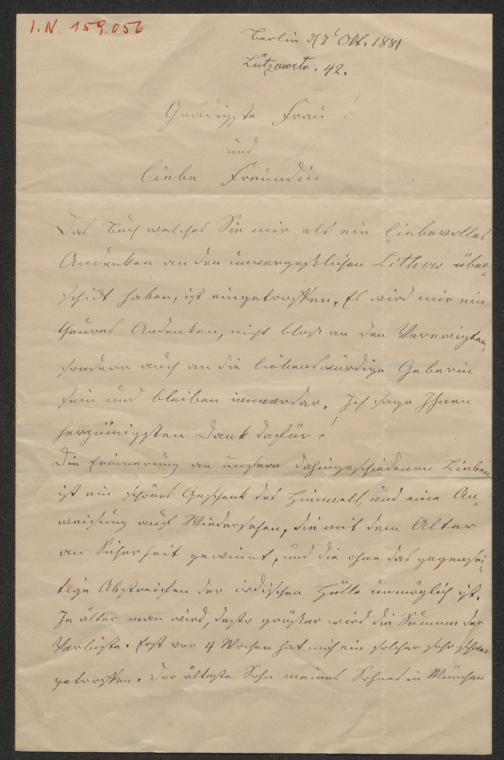 I.N. 159.056
Berlin d 7t Okt. 1881
Lützowstr. 42.
Gnädigste Frau!
und
liebe Freundin
Das Buch welches Sie mir als ein liebevolles
Andenken an den unvergeßlichen Littrow über-
schickt haben, ist eingetroffen. Es wird mir ein
theures Andenken, nicht bloß an den Verewigten,
sondern auch an die liebenswürdige Geberin
sein und bleiben immerdar. Ich sage Ihnen
herzinnigsten Dank dafür!
Die Erinnerung an unsere dahingeschiedenen Lieben
ist ein schönes Geschenk des Himmels, und eine An-
weisung auf Wiedersehen, die mit dem Alter
an Sicherheit gewinnt, und die ohne das gegensei-
tige Abstreifen der irdischen Hülle unmöglich ist.
Je älter man wird, desto größer wird die Summe der
Verluste. Erst vor 4 Wochen hat mich ein solcher sehr schwer
getroffen. Der älteste Sohn meines Sohnes in München